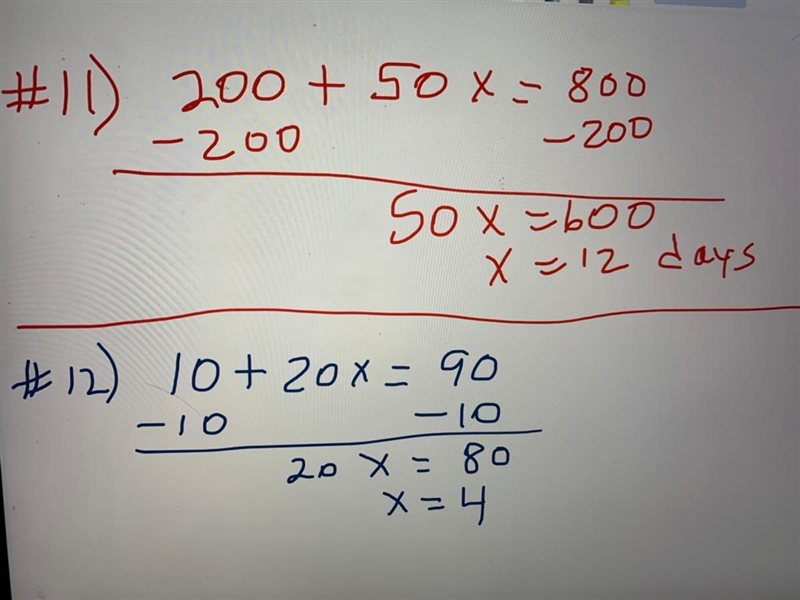 #11) 200 + 50x = 800
-200 -200
50x = 600
x = 12 days
#12) 10 + 20x = 90
-10 -10
20x = 80
x = 4